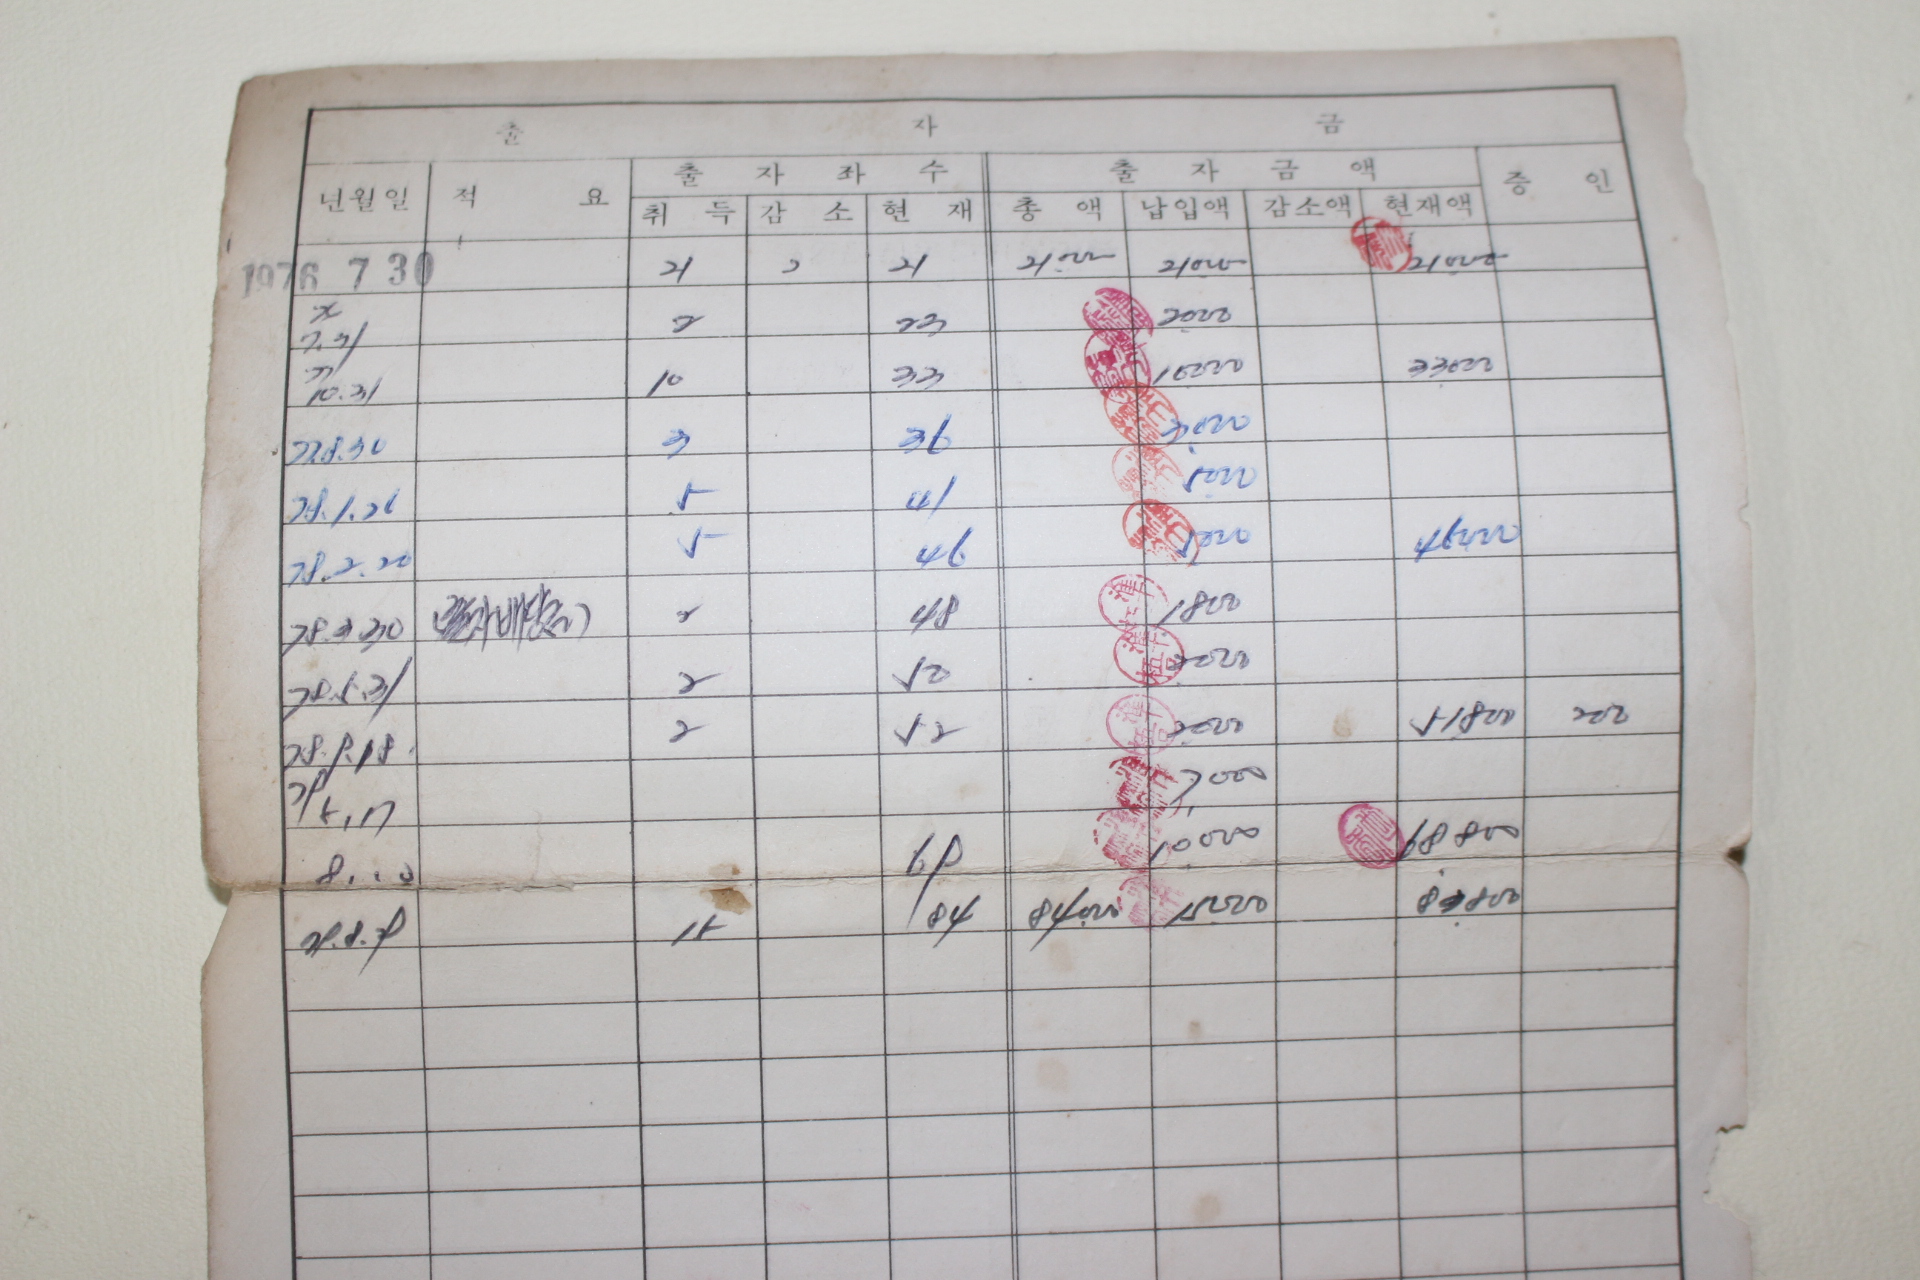 출 자 금
년월일 적 요 출 자 좌 수 출 자 금 액 증 인
취 득 감 소 현 재 총 액 납입액 감소액 현재액
1976 7 30 21 21 21000 21000 21000
7.31 2 23 2000
10.31 10 33 10000 33000
77.8.30 3 36 3000
78.1.21 5 41 5000
78.2.20 5 46 5000 46000
78.3.30 2 48 1800
78.5.31 2 50 2000
78.9.18. 2 52 2000 51800 200
79 5.17 7000
8. 69 10000 68800
79.8.9 15 84 84000 15000 83800